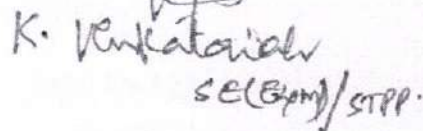 K. Venkataiah
SE(E&M)/STPP.